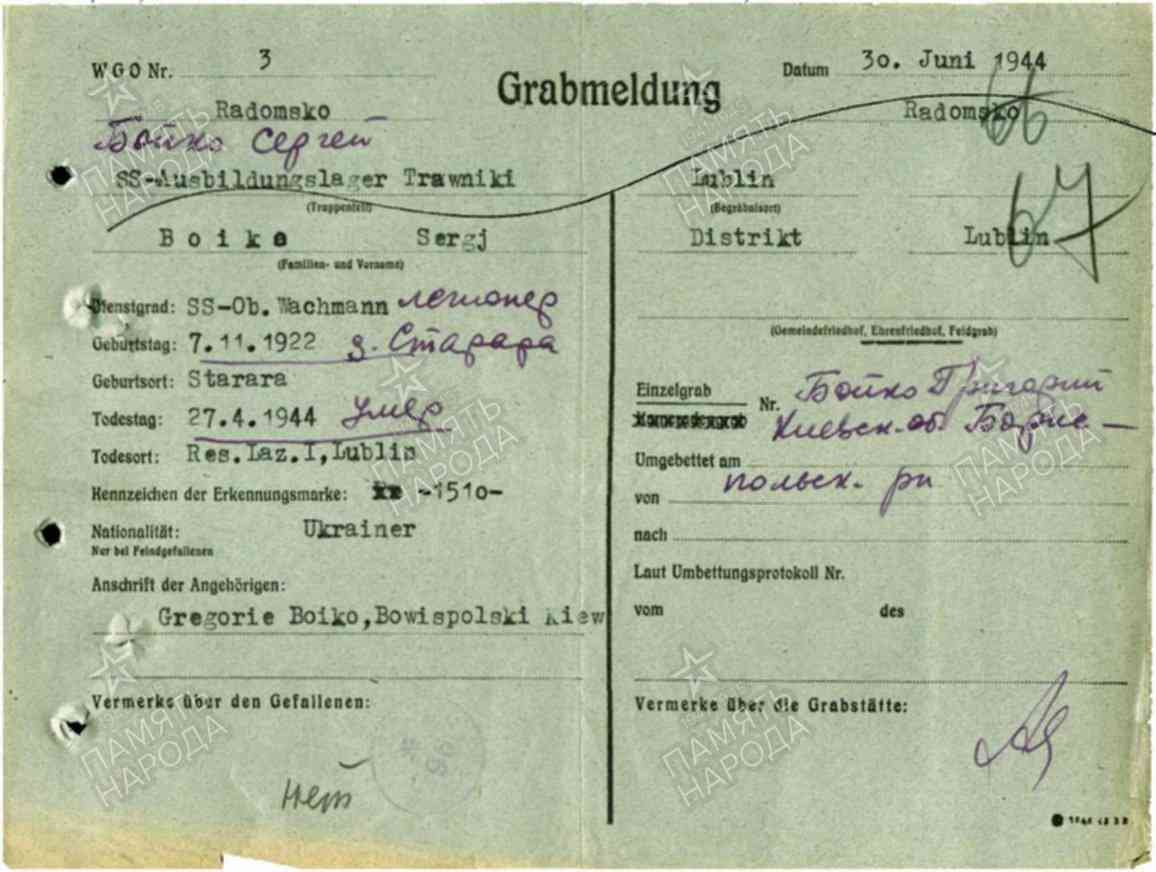 WGO Nr. 3
Grabmeldung
Datum 30. Juni 1944
Radomsko
Radomsko
66
Бойко Сергей
SS-Ausbildungslager Trawniki
(Truppenteil)
Lublin
(Begräbnisort)
67
Boiko Sergj
(Familien- und Vorname)
Distrikt Lublin
Dienstgrad: SS-Ob. Wachmann легионер
Geburtstag: 7.11.1922 д. Старара
Geburtsort: Starara
Todestag: 27.4.1944 умер
Todesort: Res.Laz.I,Lublin
Kennzeichen der Erkennungsmarke: -1510-
Nationalität: Ukrainer
Nur bei Feindgefallenen
Anschrift der Angehörigen:
Gregorie Boiko,Bowispolski Kiew
Vermerke über den Gefallenen:
нет
(Gemeindefriedhof, Ehrenfriedhof, Feldgrab)
Einzelgrab
Nr. Бойко Григорий
Киевск. об. Борис-
Umgebettet am
польск. рн
von
nach
Laut Umbettungsprotokoll Nr.
vom des
Vermerke über die Grabstätte:
ПАМЯТЬ НАРОДА
ПАМЯТЬ НАРОДА
ПАМЯТЬ НАРОДА
ПАМЯТЬ НАРОДА
ПАМЯТЬ НАРОДА
ПАМЯТЬ НАРОДА